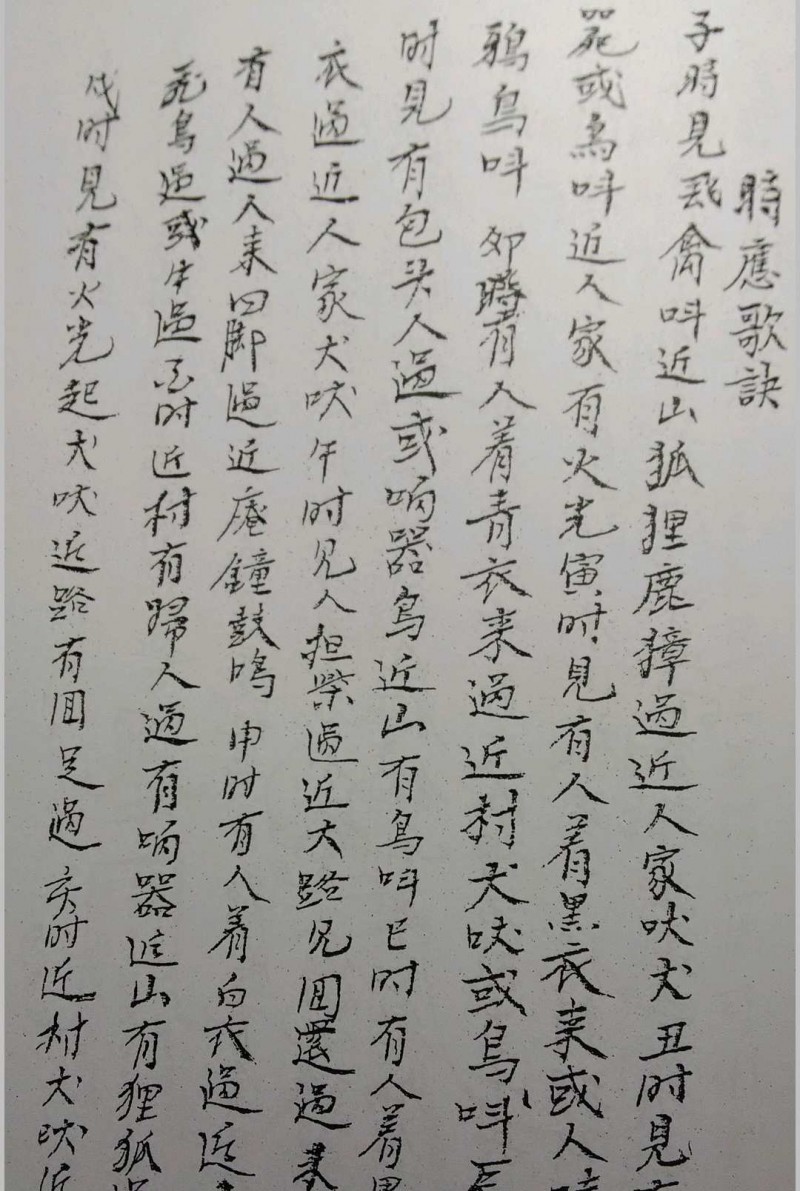 時應歌訣
子時見飛禽呌近山狐狸鹿獐過近人家吠犬丑时見
死或鳥呌近人家有火光寅时見有人着黑衣来或人
鴉鳥呌 卯時有人着青衣来過近村犬吠或鳥呌
时見有包头人過或响器鳥近山有鳥呌巳时有人着
衣過近人家犬吠午时見人担柴過近大路見回還過
有人過入来四脚過近庵鐘鼓鳴 申时有人着白衣過近
飛鳥過或牛過酉时近村有婦人過有响器近山有狸狐
戌时見有火光起犬吠近路有回足過亥时近村犬吠近